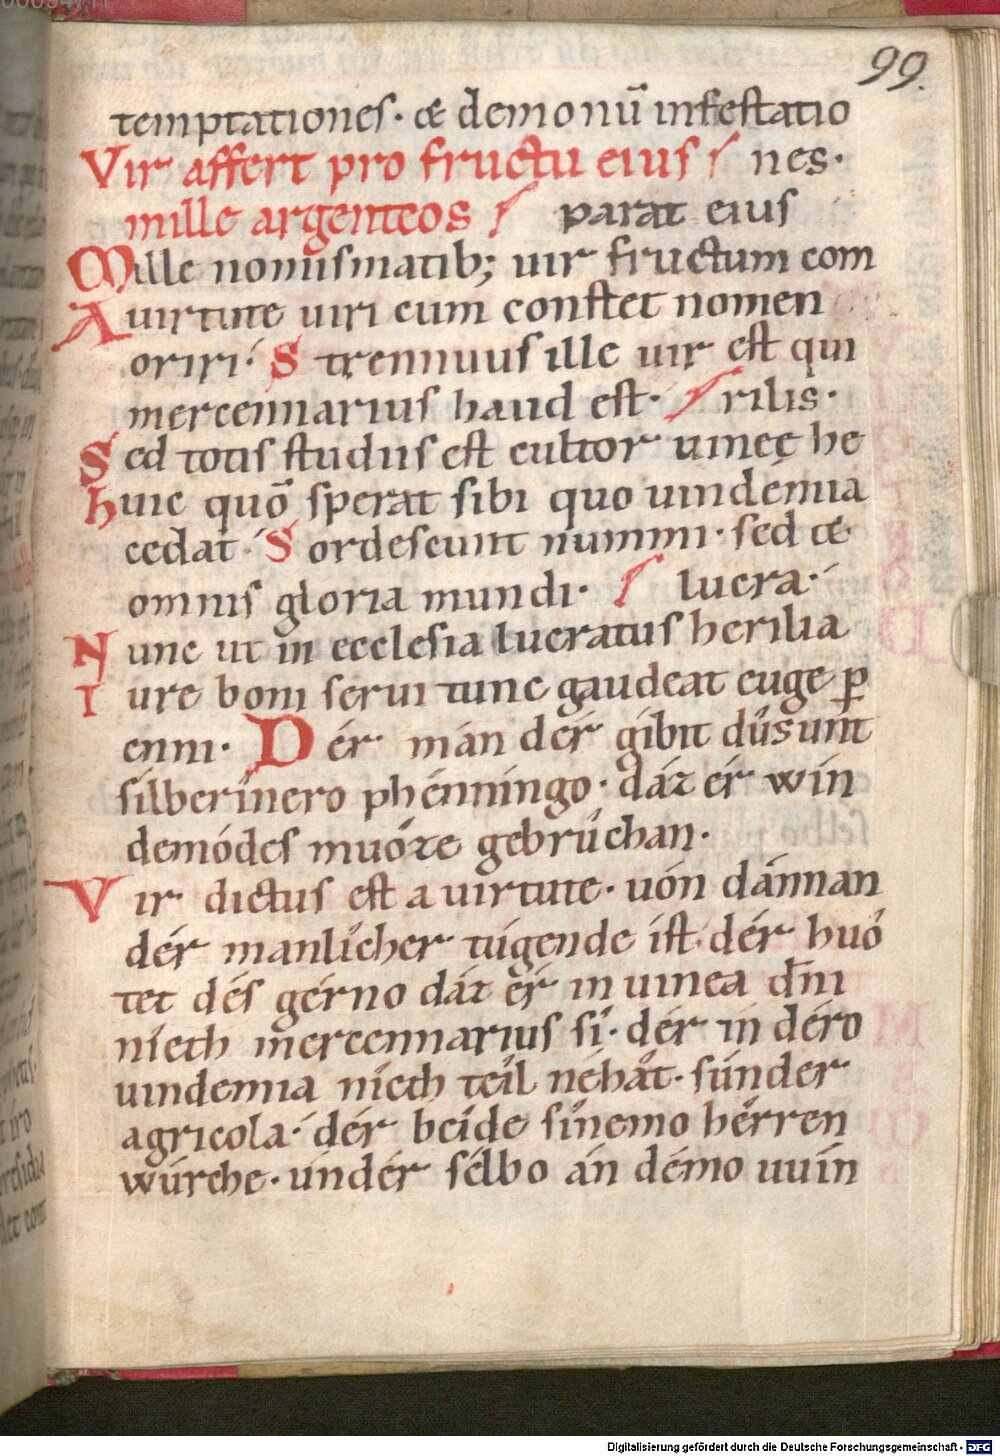 99.
temptationes· & demonū infestatio
Vir affert pro fructu eius / nes·
mille argenteos / parat eius
Mille nomismatib; uir fructum com
A uirtute uiri cum constet nomen
oriri· S trennuus ille uir est qui
mercennarius haud est· / rilis·
Sed totis studiis est cultor uineę he
huic quō sperat sibi quo uindémia
cedat· S ordescunt nummi· sed &
omnis gloria mundi· / lucra·
Nunc ut in ecclesia lucratus herilia
Iure boni serui tunc gaudeat euge ꝑ
enni· Dér mán dér gibit dûsunt
silberînero phénningo· dáz ér win
demódes muôze gebrûchan·
Vir dictus est a uirtute· uón dánnan
dér manlîcher túgende ist· dér huô
tet dés gérno dáz ér in uinea dn̄i
níeth mercennarius sî· dér in déro
uindemia níeth téil nehât· súnder
agricola· dér béide sînemo hêrren
wúrche· únder sélbo án démo uuín
Digitalisierung gefördert durch die Deutsche Forschungsgemeinschaft - DFG